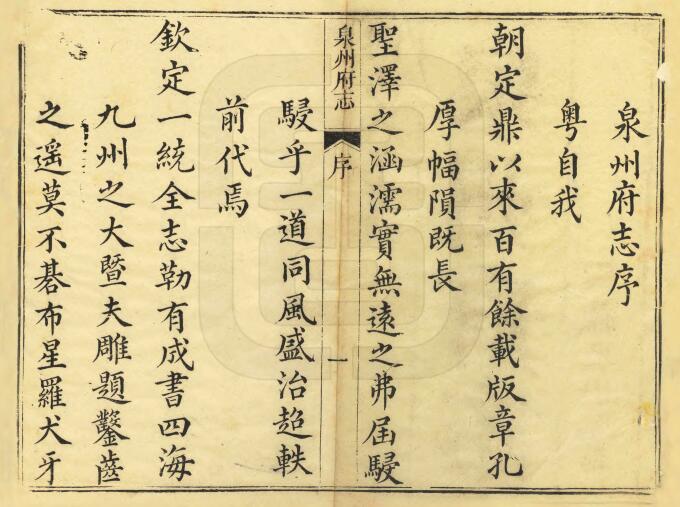 泉州府志序
粵自我
朝定鼎以來百有餘載版章孔
厚幅隕既長
聖澤之涵濡實無遠之弗屆駸
泉州府志
序
一
駸乎一道同風盛治超軼
前代焉
欽定一統全志勒有成書四海
九州之大暨夫雕題鑿齒
之遥莫不碁布星羅犬牙